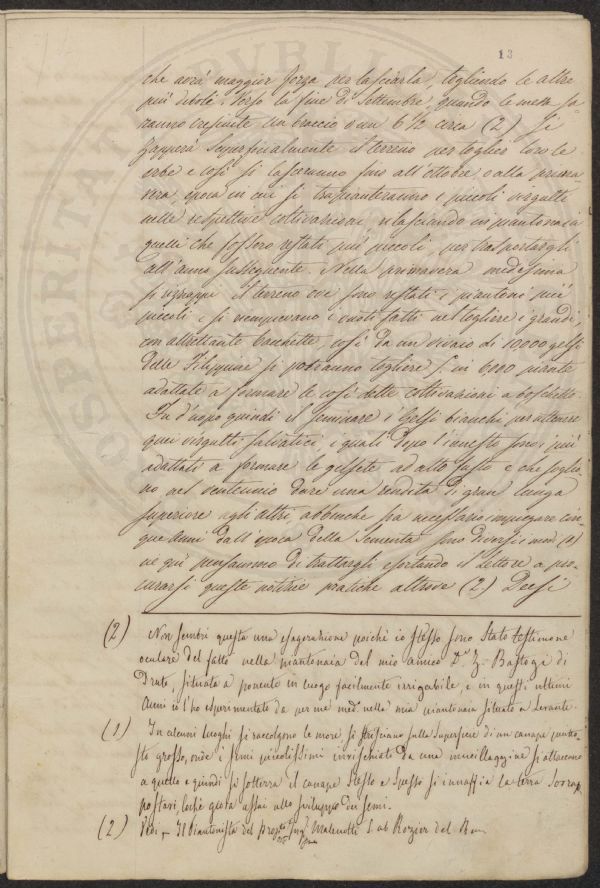 13
che avrà maggior forza per lasciarla, togliendo le altre
più debole. Verso la fine di Settembre, quando le messe sa-
ranno cresciute un braccio o un 6/2 circa (2) Si
zapperà superficialmente il terreno per toglier loro le
erbe e così si lasceranno fino all'ottobre, o alla prima-
vera, epoca in cui si trapianteranno i piccoli virgulti
nelle respettive coltivazioni, rilasciando in piantonaia
quelli che fossero restati più piccoli, per trasportargli
all'anno susseguente. Nella primavera medesima
si rizappi il terreno ove sono restati i piantoni più
piccoli e si riempevano i vuoti fatti nel togliere i grandi,
con altrettante bacchette, così da un vivaio di 10000 gelsi
delle Filippine si potranno togliere 6000 piante
adattate a formare le così dette coltivazioni a boschetto.
Fu d'uopo quindi il seminare i Gelsi bianchi per ottenere
quei virgulti salvatici i quali dopo l'innesto sono i più
adattati a formare le gelsete ad alto fusto e che soglio-
no nel ventennio dare una rendita di gran lunga
superiore agli altri, abbenche sia necessario impiegare cin-
que Anni dall'epoca della Sementa. Sono diversi i modi (1)
nè qui pensiamo di trattargli esortando il Lettore a pro-
curarsi queste notizie pratiche altrove (2) Deesi
(2) Non sembri questa una esagerazione poichè io stesso sono stato testimone
oculare del fatto nella piantonaia del mio amico D.r Z. Bastogi di
situata a ponente in luogo facilmente irrigabile, e in questi ultimi
Anni io l'ho esperimentato da per me med. nella mia piantonaia situata a Levante.
(1) In alcuni luoghi si raccolgono le more si strisciano sulla superficie di un canape piutto-
sto grosso, onde i semi piccolissimi invischiati da una mucillagine si attaccano
a quello e quindi si sotterra il canape stesso e spesso si innaffia la terra sovrap-
postavi, lochè giova assai allo sviluppo dei semi.
(2) Vedi Il Piantonista del Malenotti Rozier